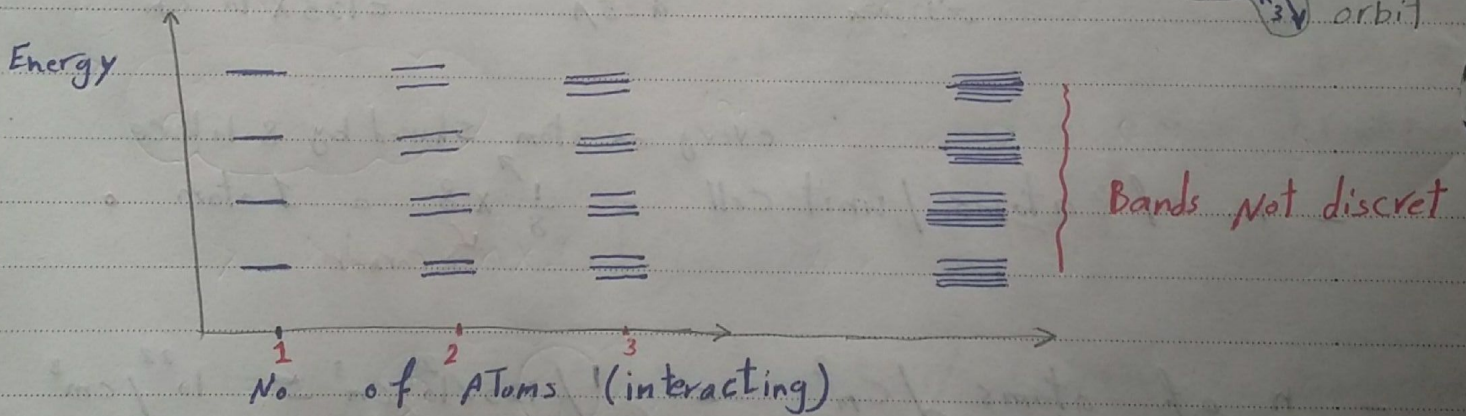 3 orbit
Energy
Bands Not discret
1 2 3
No of AToms (interacting)